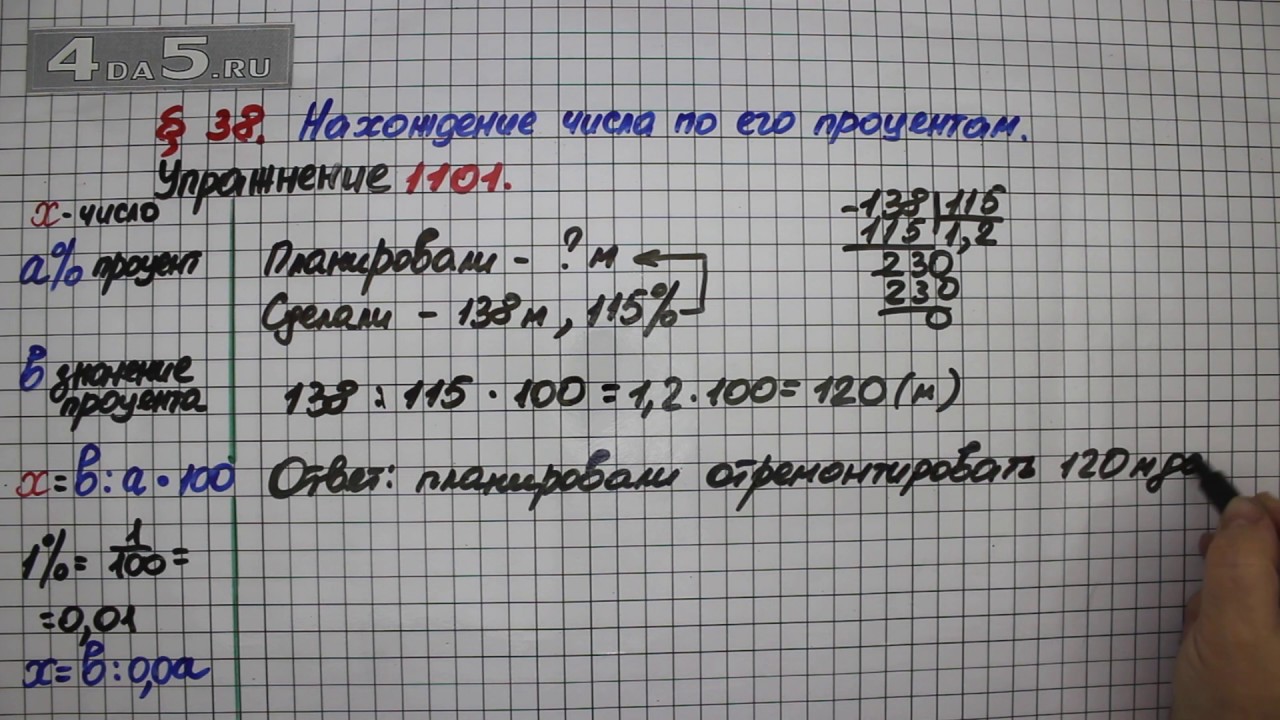 4DA5.RU
§ 38. Нахождение числа по его процентам.
Упражнение 1101.
x - число
a% процент
в значение
процента
x = в : a • 100
1% = 1/100 =
= 0,01
x = в : 0,0a
Планировали - ? м
Сделали - 138 м, 115%
138 : 115 · 100 = 1,2 · 100 = 120 (м)
Ответ: планировали отремонтировать 120 м до
-138 | 115
115 | 1,2
230
230
0